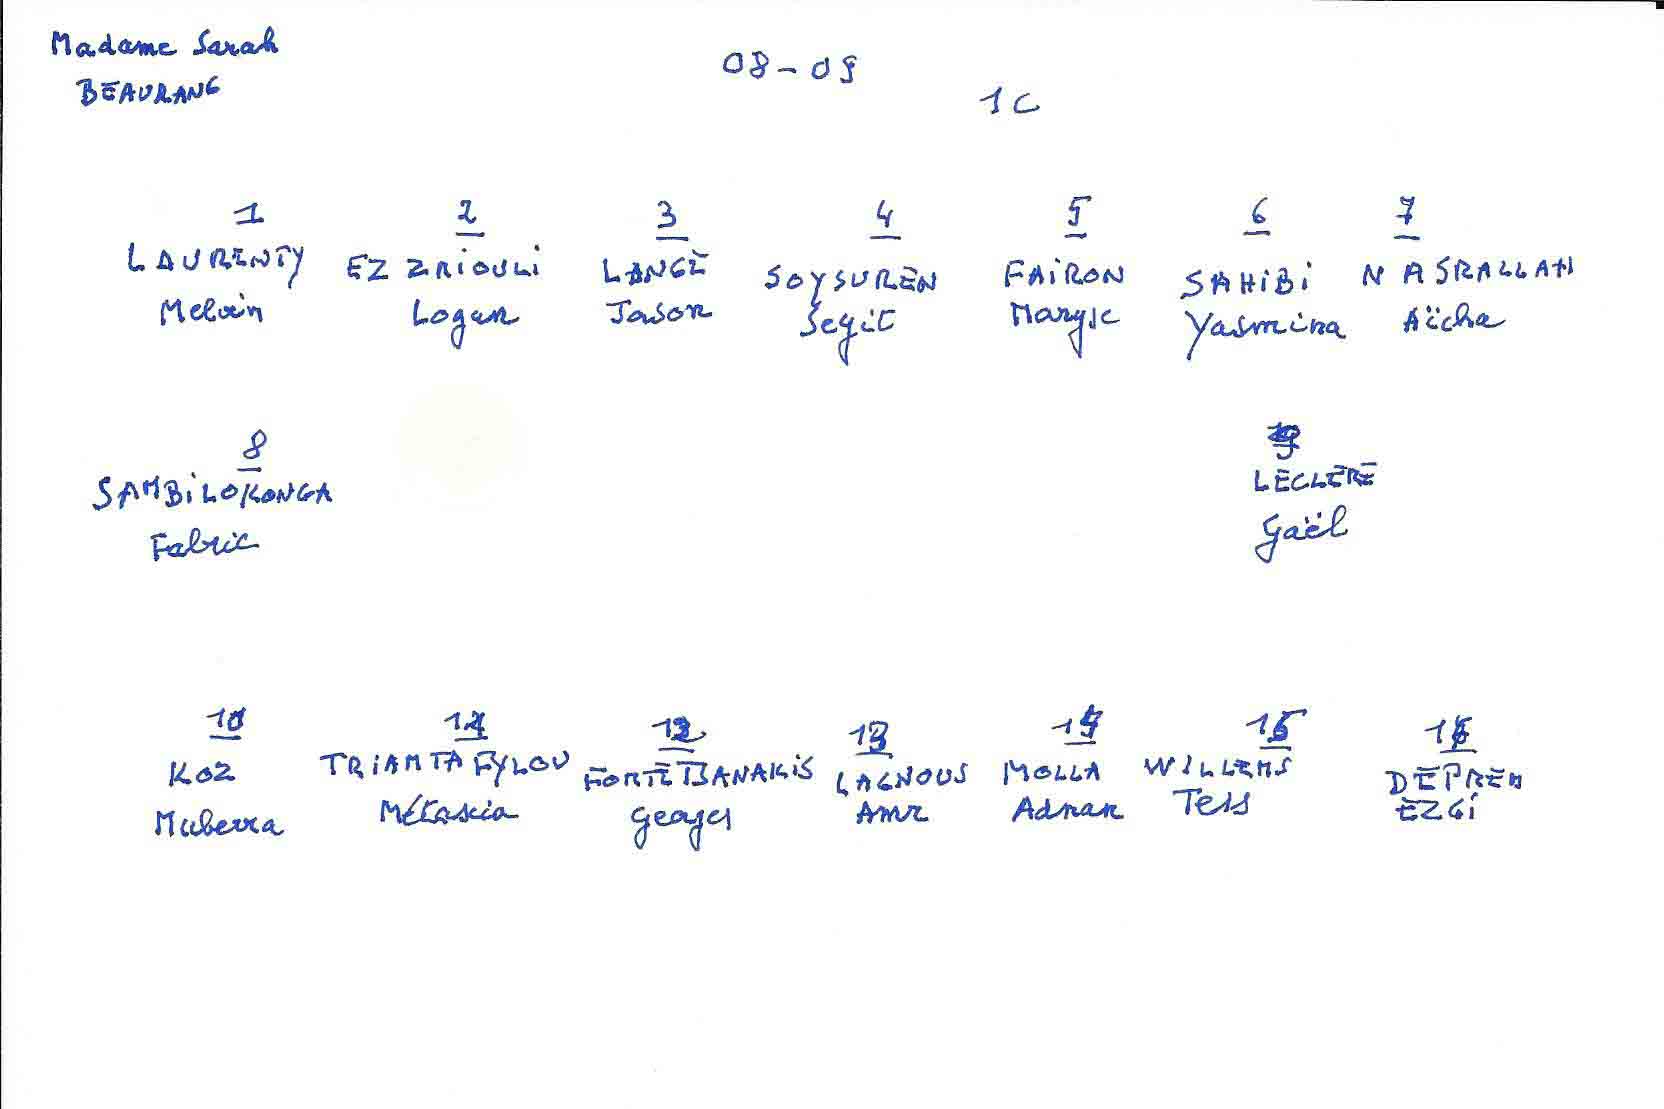 Madame Sarah
BEAURANG
08-09
1C
1 2 3 4 5 6 7
LAURENTY EZ ZRIOULI LANGE SOYSUREN FAIRON SAHIBI NASRALLAH
Melvin Logan Jason Seyit Maryse Yasmina Aïcha
8 9
SAMBILOKONGA LECLERE
Fabric Gaël
10 11 12 13 14 15 16
KOZ TRIAMTAFYLOU LAGNOUS MOLLA WILLEMS DEPREM
Muberra Georges Amr Adnan Tess EZGI